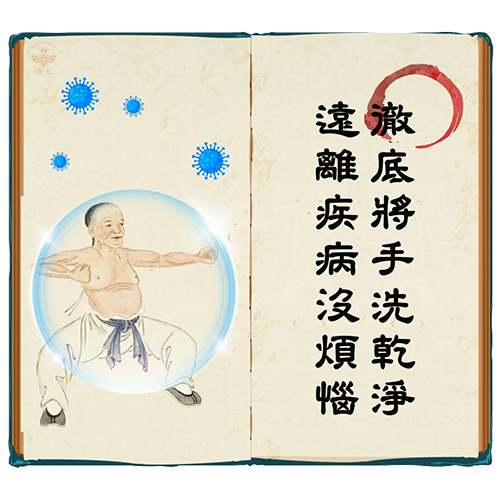 徹底將手洗乾淨
遠離疾病沒煩惱